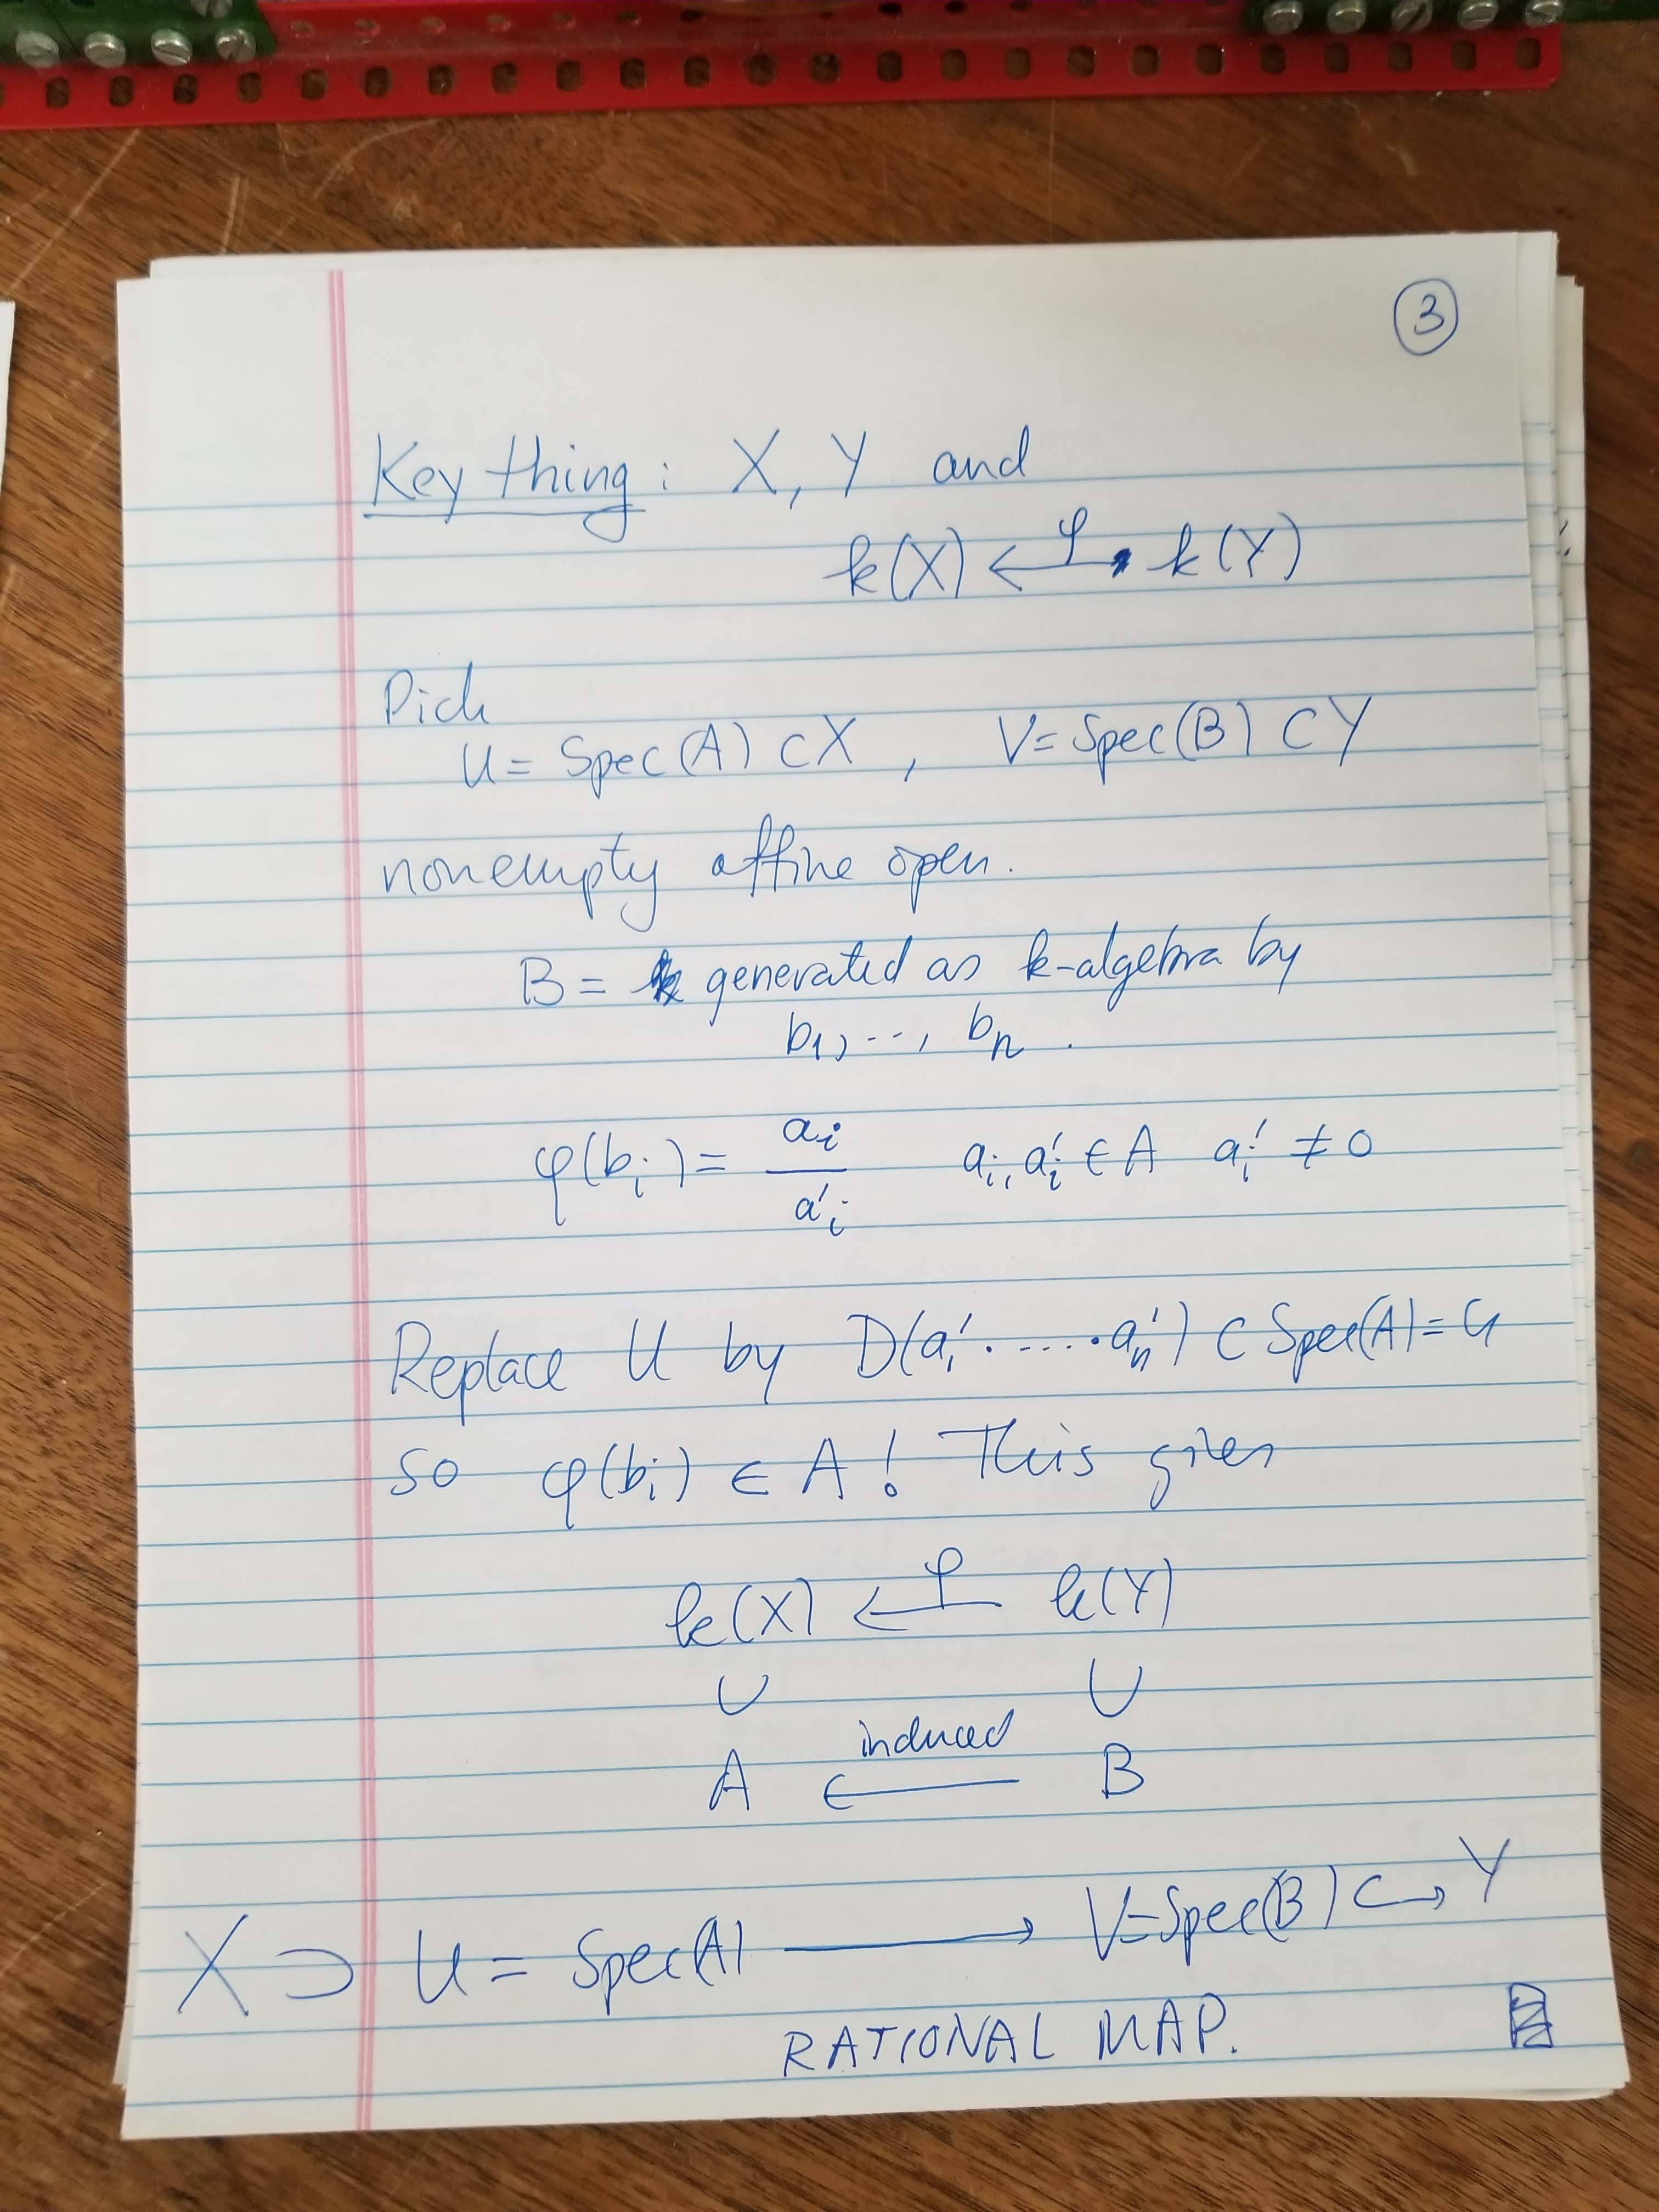 3
Key thing: X, Y and
k(X) ←φ k(Y)
Pick
U = Spec(A) ⊂ X , V = Spec(B) ⊂ Y
nonempty affine open.
B = generated as k-algebra by
b₁, .., bₙ .
φ(bᵢ) = aᵢ / a'ᵢ aᵢ, a'ᵢ ∈ A a'ᵢ ≠ 0
Replace U by D(a'₁ · .... · a'ₙ) ⊂ Spec(A) = U
so φ(bᵢ) ∈ A ! This gives
k(X) ←φ k(Y)
∪ ∪
induced
A ← B
X ⊃ U = Spec(A) → V = Spec(B) ↪ Y
RATIONAL MAP.